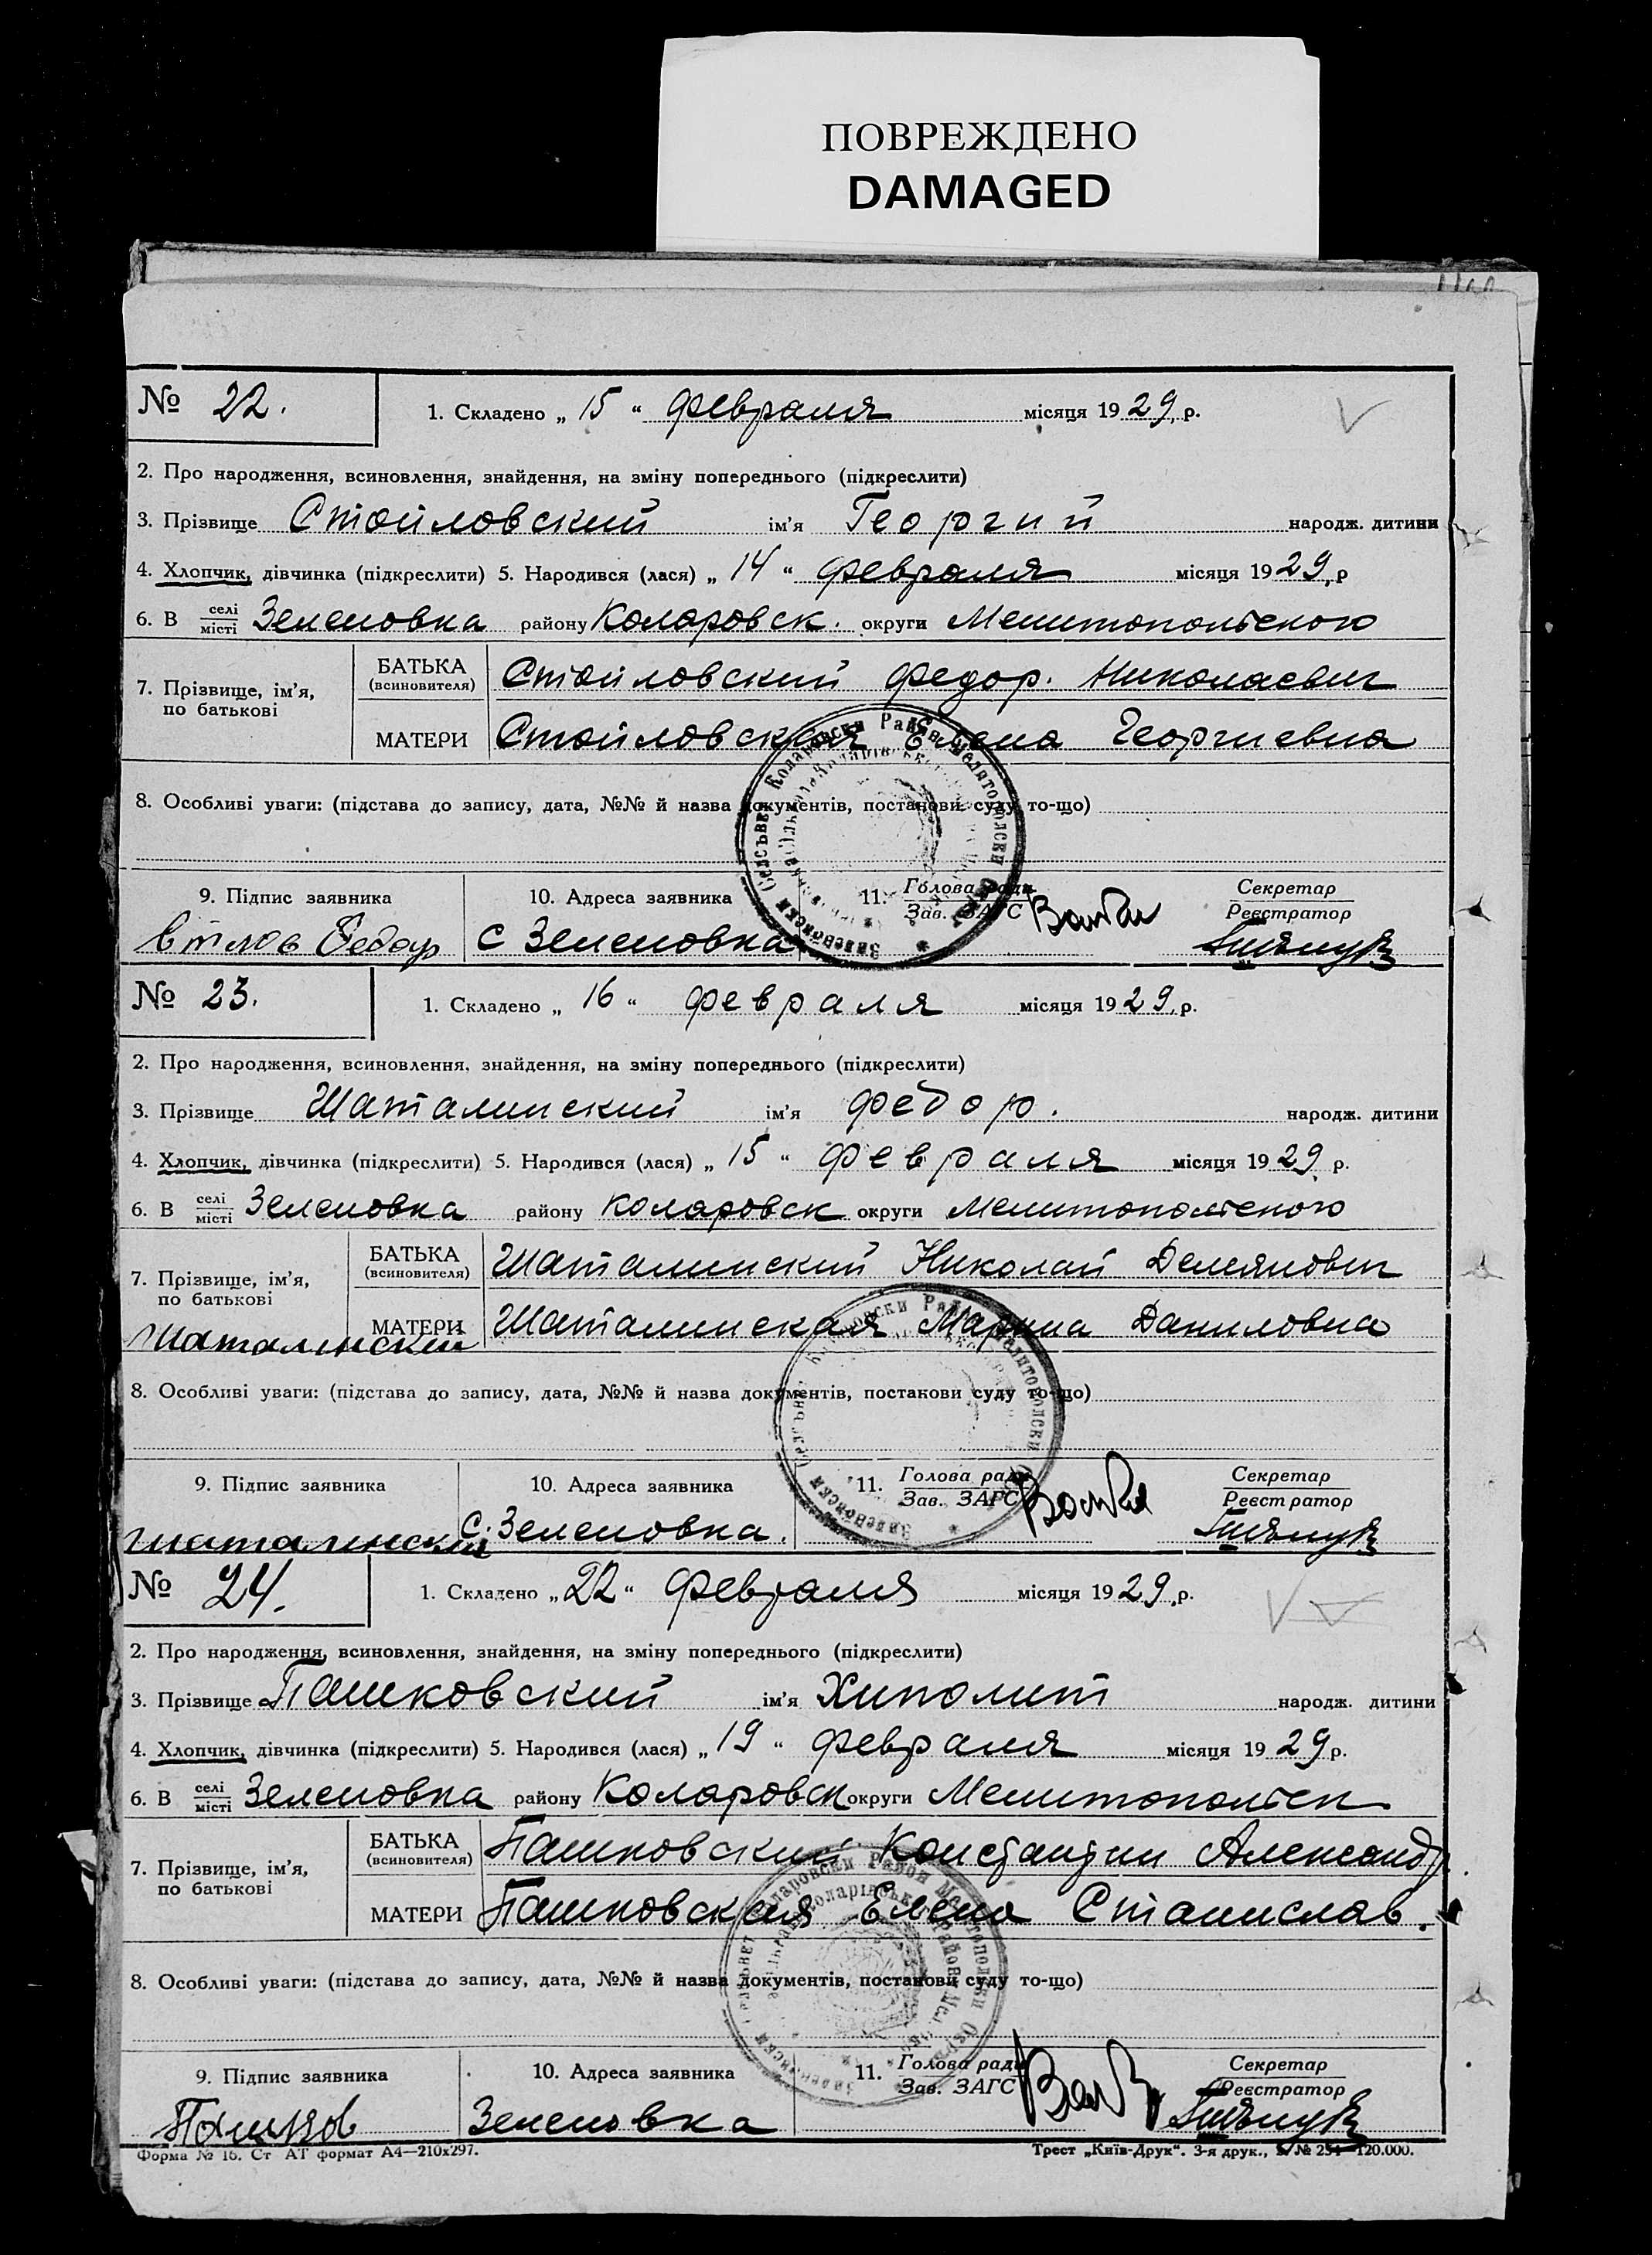 ПОВРЕЖДЕНО
DAMAGED
№ 22. 1. Складено „ 15 “ февраля місяця 1929, р.
2. Про народження, всиновлення, знайдення, на зміну попереднього (підкреслити)
3. Прізвище Стойловский ім'я Георгий народж. дитини
4. Хлопчик, дівчинка (підкреслити) 5. Народився (лася) „ 14 “ февраля місяця 1929, р
6. В селі місті Зеленовка району Коларовск. округи Мелитопольского
7. Прізвище, ім'я, по батькові БАТЬКА (всиновителя) Стойловский Федор. Николаевич
МАТЕРИ Стойловская Елена Георгиевна
8. Особливі уваги: (підстава до запису, дата, №№ й назва документів, постанови суду то-що)
9. Підпис заявника 10. Адреса заявника 11. Голова ради Зав. ЗАГС Секретар Реєстратор
Федор с Зеленовка
№ 23. 1. Складено „ 16 “ февраля місяця 1929, р.
2. Про народження, всиновлення, знайдення, на зміну попереднього (підкреслити)
3. Прізвище Шаталинский ім'я Федор. народж. дитини
4. Хлопчик, дівчинка (підкреслити) 5. Народився (лася) „ 15 “ февраля місяця 1929 р.
6. В селі місті Зеленовка району Коларовск округи Мелитопольского
7. Прізвище, ім'я, по батькові БАТЬКА (всиновителя) Шаталинский Николай Демянович
МАТЕРИ Шаталинская Марина Даниловна
Шаталинский
8. Особливі уваги: (підстава до запису, дата, №№ й назва документів, постанови суду то-що)
9. Підпис заявника 10. Адреса заявника 11. Голова ради Зав. ЗАГС Секретар Реєстратор
Шаталинский с. Зеленовка.
№ 24. 1. Складено „ 22 “ февраля місяця 1929, р.
2. Про народження, всиновлення, знайдення, на зміну попереднього (підкреслити)
3. Прізвище Пашковский ім'я Хиполит народж. дитини
4. Хлопчик, дівчинка (підкреслити) 5. Народився (лася) „ 19 “ февраля місяця 1929 р.
6. В селі місті Зеленовка району Коларовск округи Мелитопольск
7. Прізвище, ім'я, по батькові БАТЬКА (всиновителя) Пашковский Константин Александр.
МАТЕРИ Пашковская Елена Станислав.
8. Особливі уваги: (підстава до запису, дата, №№ й назва документів, постанови суду то-що)
9. Підпис заявника 10. Адреса заявника 11. Голова ради Зав. ЗАГС Секретар Реєстратор
Зеленовка
Форма № 16. Ст АТ формат А4—210х297. Трест „Київ-Друк“. 3-я друк., 120.000.